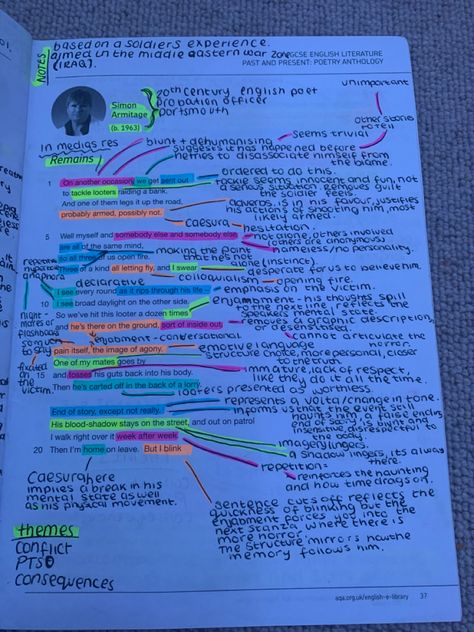 NOTES
based on a soldiers experience.
aimed in the middle eastern war zone
(IRAQ).
GCSE ENGLISH LITERATURE
PAST AND PRESENT: POETRY ANTHOLOGY
Simon
Armitage
(b. 1963)
20th century english poet
probation officer
portsmouth
unimportant
other stories
to tell
in medias res
blunt + dehumanising
seems trivial
suggests it has happened before
+ tries to disassociate himself from
the blame
Remains
ordered to do this.
1 On another occasion, we get sent out
to tackle looters raiding a bank.
And one of them legs it up the road,
probably armed, possibly not.
tackle seems innocent and fun, not
a serious situation. removes guilt
the soldier feels
adverbs, is in his favour, justifies
his actions of shooting him, most
likely armed.
caesura hesitation.
5 Well myself and somebody else and somebody else
are all of the same mind,
so all three of us open fire.
Three of a kind all letting fly, and I swear
not alone, others involved
(others are anonymous)
nameless/no personality.
making the point
that he's not
alone (instinct).
desperate for us to believe him
declarative
colloquialism = opening fire.
I see every round as it rips through his life –
10 I see broad daylight on the other side.
So we've hit this looter a dozen times
and he's there on the ground, sort of inside out,
emphasis on the victim.
enjambment - his thoughts spill
to the next line, reflects the
speakers mental state.
removes a graphic description,
or desensitised.
cannot articulate the
horror.
night-
mares or
flashbacks
to
enjambment - conversational
pain itself, the image of agony.
One of my mates goes by
15 and tosses his guts back into his body.
Then he's carted off in the back of a lorry.
emotive language
structure choice, more personal, closer
to the truth
immature, lack of respect,
like they do it all the time.
looters presented as worthless.
fixated
on
the
victim.
represents a volta/change in tone.
End of story, except not really.
His blood-shadow stays on the street, and out on patrol
I walk right over it week after week.
20 Then I'm home on leave. But I blink
informs us that the event still
haunting him, a false ending
end of story, is blunt and
insensitive, disrespectful to
the body.
imagery lingers.
a shadow lingers, its always
there.
repetition =
reinforces the haunting
and how time drags on.
Caesura here
implies a break in his
mental state as well
as his physical movement.
sentence cuts off reflects the
quickness of blinking but the
enjabment forces you into the
next stanza where there is
more horror.
The structure mirrors how the
memory follows him.
themes
conflict
PTSD
consequences
aqa.org.uk/english-e-library
37